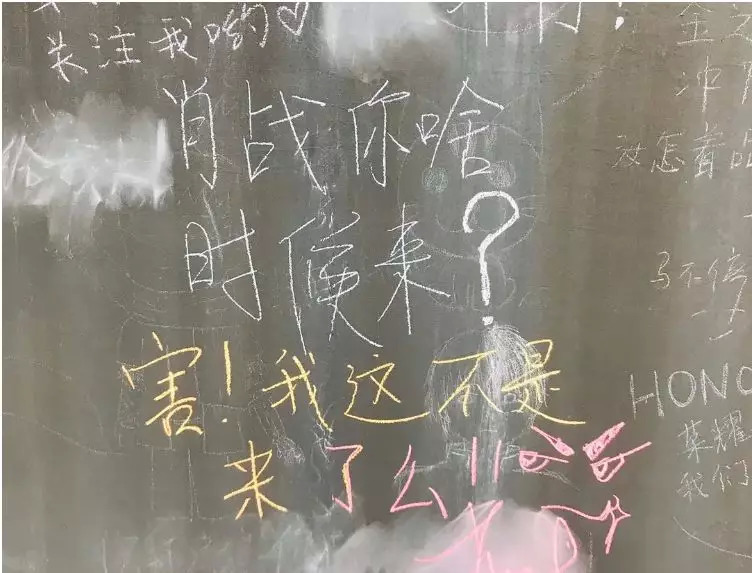 关注我哟♡
肖战你啥
时候来?
害!我这不是
来了么!!
金
冲
改怎着
马不停
HONO
荣耀
我们